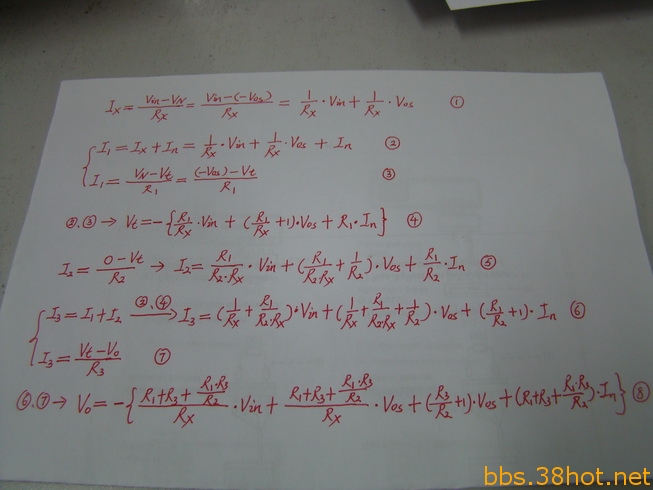 Ix = (Vin−VN)/Rx = (Vin−(−Vos))/Rx = 1/Rx · Vin + 1/Rx · Vos ①
I1 = Ix + In = 1/Rx · Vin + 1/Rx · Vos + In ②
I1 = (VN−Vt)/R1 = ((−Vos)−Vt)/R1 ③
②.③ → Vt = −{R1/Rx · Vin + (R1/Rx +1)·Vos + R1·In} ④
I2 = (0−Vt)/R2 → I2 = R1/(R2·Rx) · Vin + (R1/(R2·Rx) + 1/R2)·Vos + R1/R2 · In ⑤
I3 = I1 + I2 ②.④→ I3 = (1/Rx + R1/(R2·Rx))·Vin + (1/Rx + R1/(R2Rx) + 1/R2)·Vos + (R1/R2 +1)·In ⑥
I3 = (Vt−Vo)/R3 ⑦
⑥.⑦ → Vo = −{(R1+R3+ R1·R3/R2)/Rx · Vin + (R1+R3+ R1·R3/R2)/Rx · Vos + (R3/R2 +1)·Vos + (R1+R3+ R1·R3/R2)·In} ⑧
bbs.38hot.net